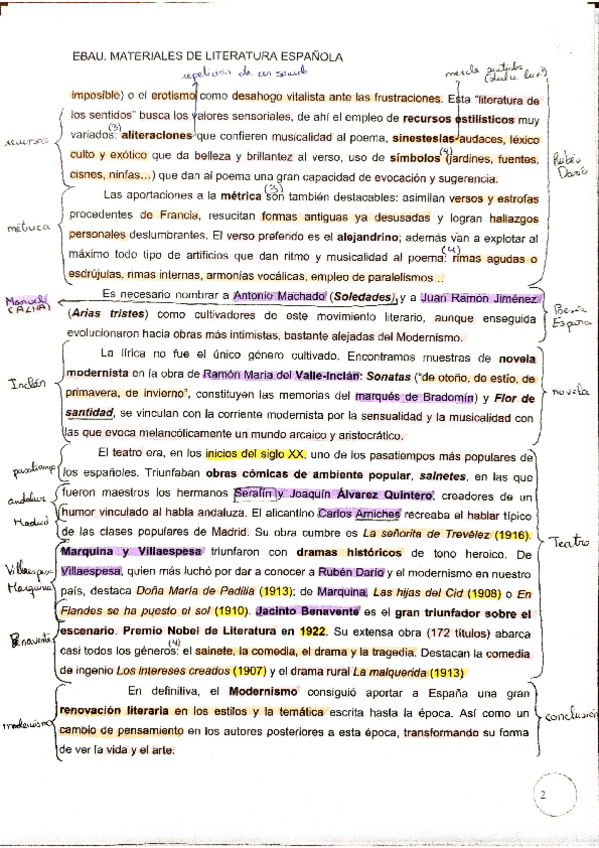 EBAU. MATERIALES DE LITERATURA ESPAÑOLA
repetición de un sonido
mezcla sentidos
(dulce luz)
imposible) o el erotismo como desahogo vitalista ante las frustraciones. Esta "literatura de
los sentidos" busca los valores sensoriales, de ahí el empleo de recursos estilísticos muy
variados: (3) aliteraciones que confieren musicalidad al poema, sinestesias audaces, léxico
culto y exótico que da belleza y brillantez al verso, uso de símbolos (4) (jardines, fuentes,
cisnes, ninfas...) que dan al poema una gran capacidad de evocación y sugerencia.
recursos
Rubén
Darío
Las aportaciones a la métrica (3) son también destacables: asimilan versos y estrofas
procedentes de Francia, resucitan formas antiguas ya desusadas y logran hallazgos
personales deslumbrantes. El verso preferido es el alejandrino; además van a explotar al
máximo todo tipo de artificios que dan ritmo y musicalidad al poema: (4) rimas agudas o
esdrújulas, rimas internas, armonías vocálicas, empleo de paralelismos...
métrica
Es necesario nombrar a Antonio Machado (Soledades) y a Juan Ramón Jiménez
(Arias tristes) como cultivadores de este movimiento literario, aunque enseguida
evolucionaron hacia obras más intimistas, bastante alejadas del Modernismo.
Manuel
(ALMA)
Poesía
España
La lírica no fue el único género cultivado. Encontramos muestras de novela
modernista en la obra de Ramón María del Valle-Inclán: Sonatas ("de otoño, de estío, de
primavera, de invierno", constituyen las memorias del marqués de Bradomín) y Flor de
santidad, se vinculan con la corriente modernista por la sensualidad y la musicalidad con
las que evoca melancólicamente un mundo arcaico y aristocrático.
Inclán
novela
El teatro era, en los inicios del siglo XX, uno de los pasatiempos más populares de
los españoles. Triunfaban obras cómicas de ambiente popular, sainetes, en las que
fueron maestros los hermanos Serafín y Joaquín Álvarez Quintero, creadores de un
humor vinculado al habla andaluza. El alicantino Carlos Arniches recreaba el hablar típico
de las clases populares de Madrid. Su obra cumbre es La señorita de Trevélez (1916).
Marquina y Villaespesa triunfaron con dramas históricos de tono heroico. De
Villaespesa, quien más luchó por dar a conocer a Rubén Darío y el modernismo en nuestro
país, destaca Doña María de Padilla (1913); de Marquina, Las hijas del Cid (1908) o En
Flandes se ha puesto el sol (1910). Jacinto Benavente es el gran triunfador sobre el
escenario. Premio Nobel de Literatura en 1922. Su extensa obra (172 títulos) abarca
casi todos los géneros: (4) el sainete, la comedia, el drama y la tragedia. Destacan la comedia
de ingenio Los intereses creados (1907) y el drama rural La malquerida (1913)
pasatiempo
andaluza
Madrid
Villaespesa
Marquina
Benavente
Teatro
En definitiva, el Modernismo consiguió aportar a España una gran
renovación literaria en los estilos y la temática escrita hasta la época. Así como un
cambio de pensamiento en los autores posteriores a esta época, transformando su forma
de ver la vida y el arte.
modernismo
conclusión
2